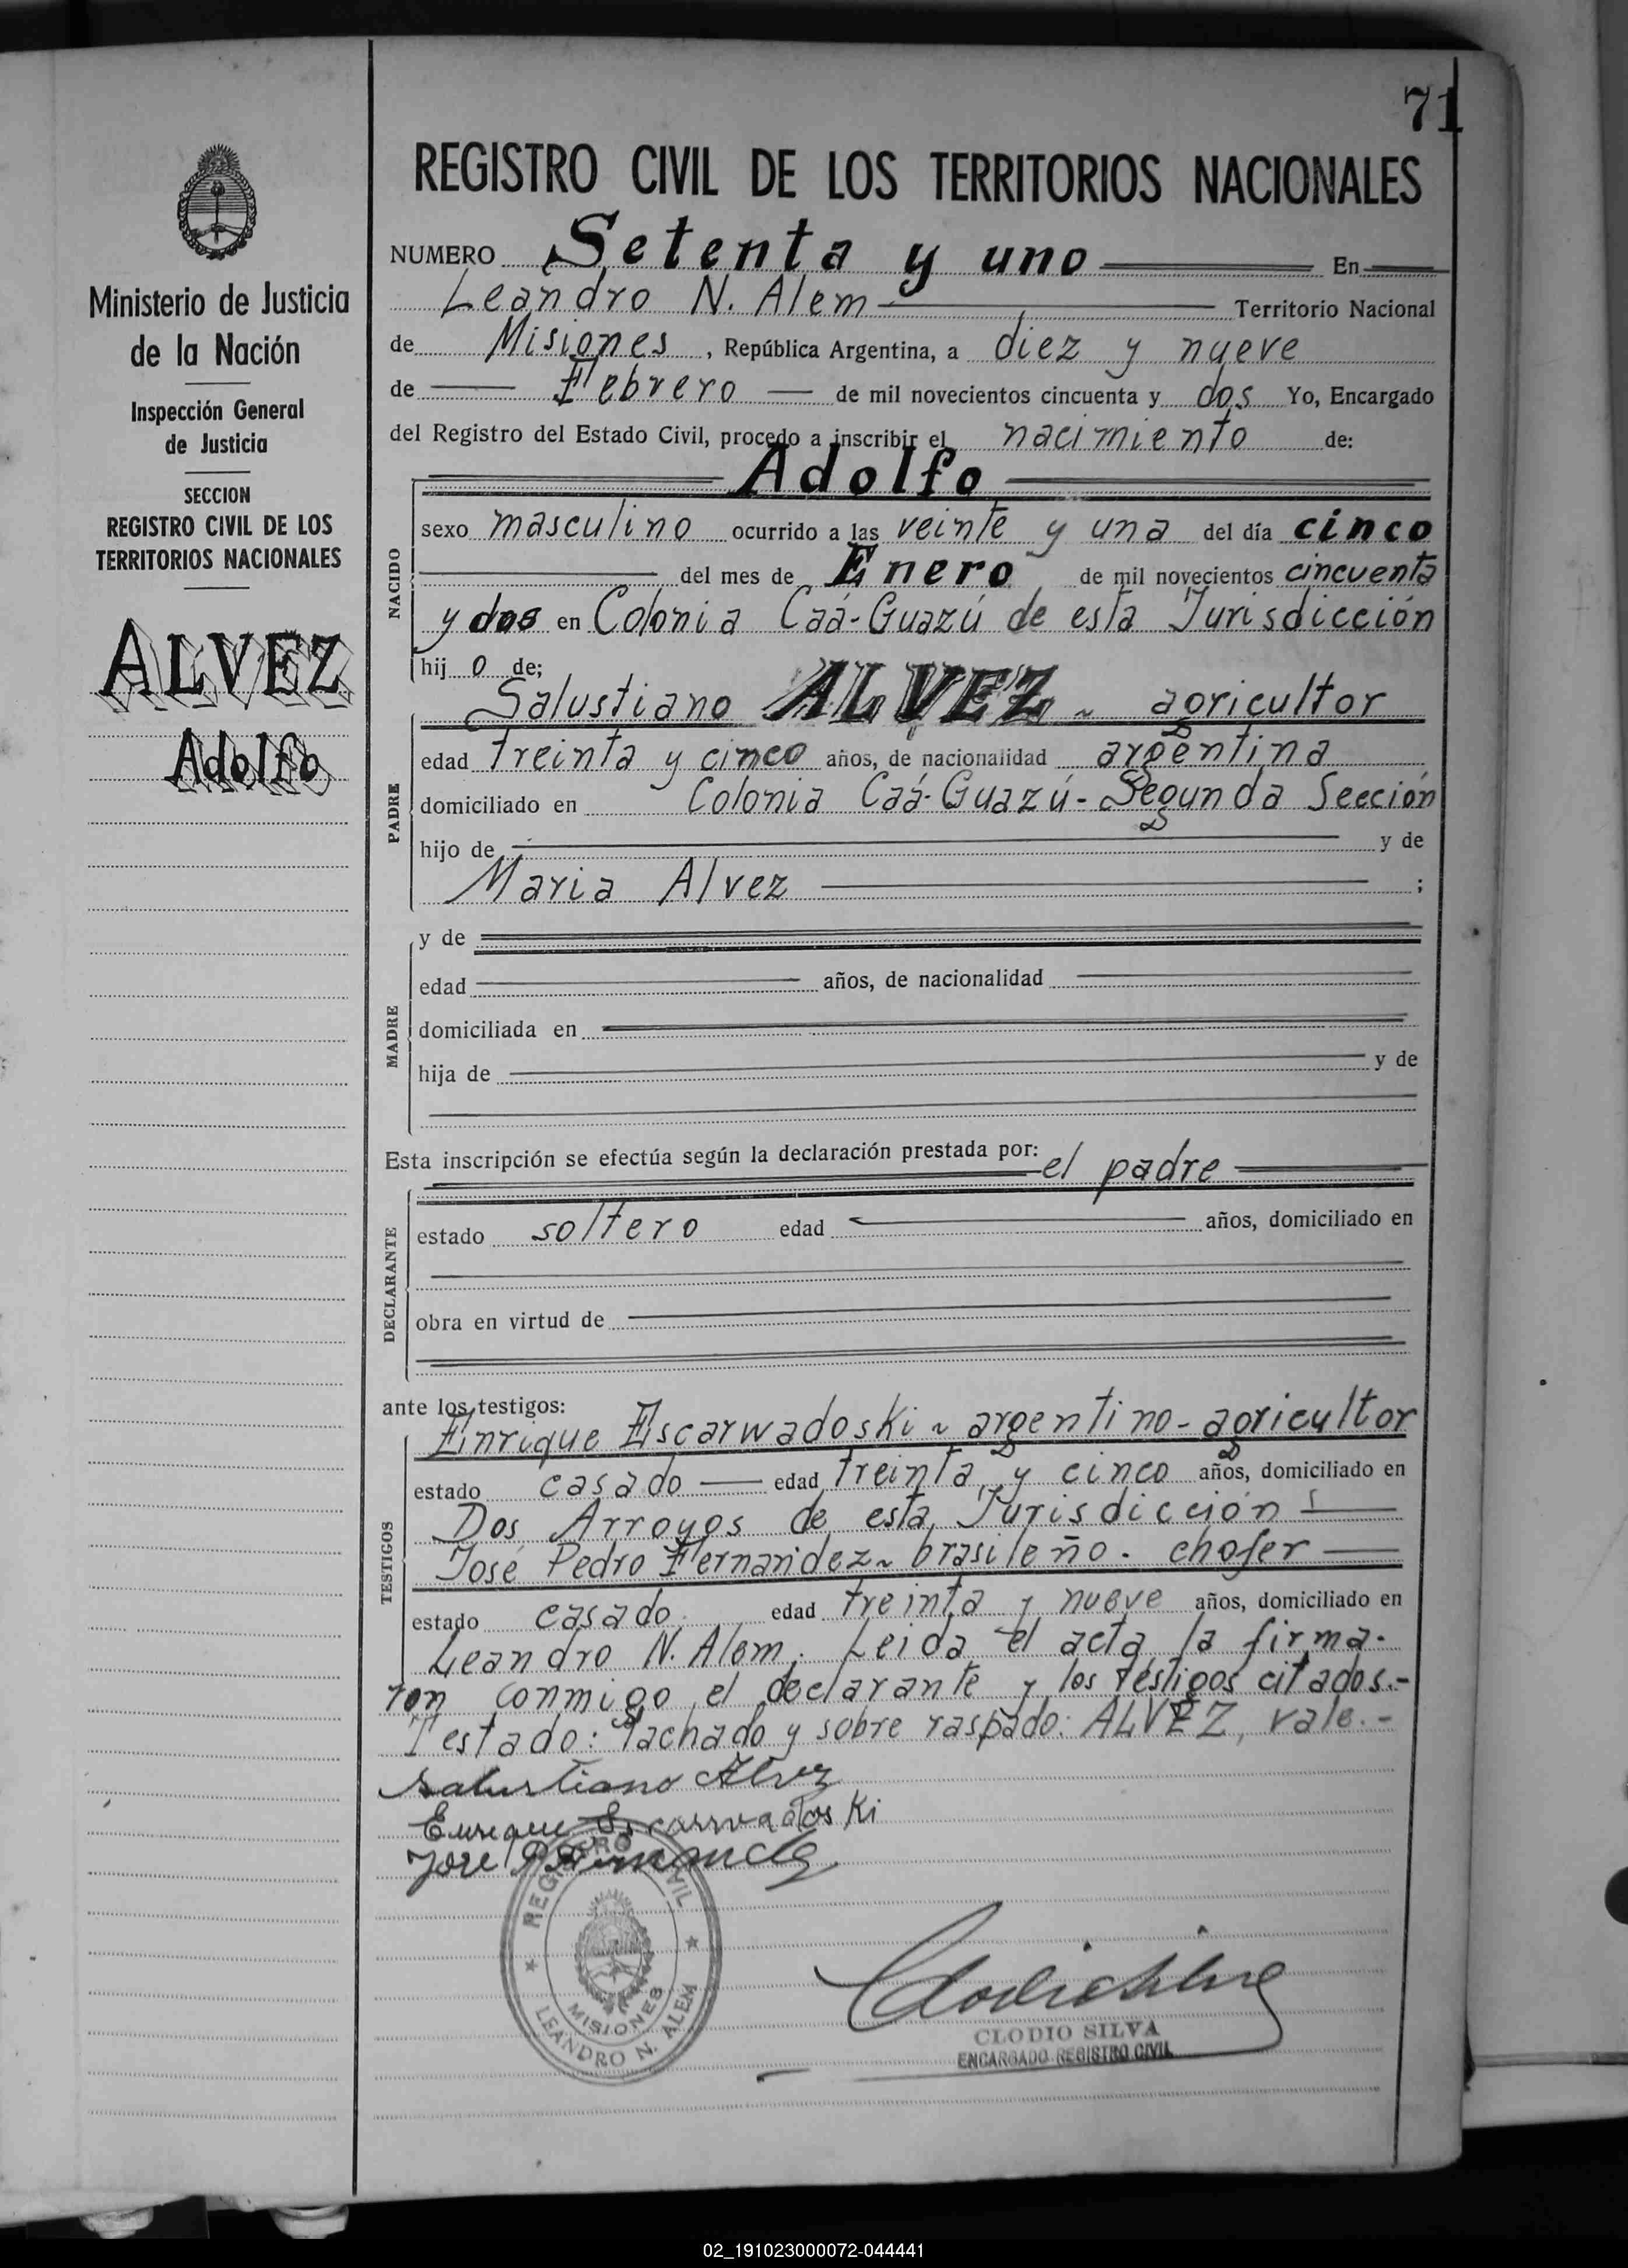 71
Ministerio de Justicia
de la Nación
Inspección General
de Justicia
SECCION
REGISTRO CIVIL DE LOS
TERRITORIOS NACIONALES
ALVEZ
Adolfo
REGISTRO CIVIL DE LOS TERRITORIOS NACIONALES
NUMERO Setenta y uno En
Leandro N. Alem Territorio Nacional
de Misiones, República Argentina, a diez y nueve
de Febrero de mil novecientos cincuenta y dos Yo, Encargado
del Registro del Estado Civil, procedo a inscribir el nacimiento de:
Adolfo
NACIDO
sexo masculino ocurrido a las veinte y una del día cinco
del mes de Enero de mil novecientos cincuenta
y dos en Colonia Caá-Guazú de esta Jurisdicción
hij o de;
Salustiano ALVEZ ~ agricultor
PADRE
edad treinta y cinco años, de nacionalidad argentina
domiciliado en Colonia Caá-Guazú-Segunda Sección
hijo de y de
Maria Alvez ;
MADRE
y de
edad años, de nacionalidad
domiciliada en
hija de y de
Esta inscripción se efectúa según la declaración prestada por:
el padre
DECLARANTE
estado soltero edad años, domiciliado en
obra en virtud de
ante los testigos:
TESTIGOS
Enrique Escarwadoski ~ argentino - agricultor
estado casado edad treinta y cinco años, domiciliado en
Dos Arroyos de esta Jurisdicción
José Pedro Fernandez ~ brasileño. chofer
estado casado. edad treinta y nueve años, domiciliado en
Leandro N. Alem. Leida el acta, la firma-
ron conmigo el declarante y los testigos citados.-
Testado: Tachado y sobre raspado: ALVEZ, vale.-
Salustiano Alvez
Enrique Escarwadoski
Jose P Fernandez
REGISTRO CIVIL
MISIONES
LEANDRO N. ALEM
Clodio Silva
CLODIO SILVA
ENCARGADO REGISTRO CIVIL
02_191023000072-044441